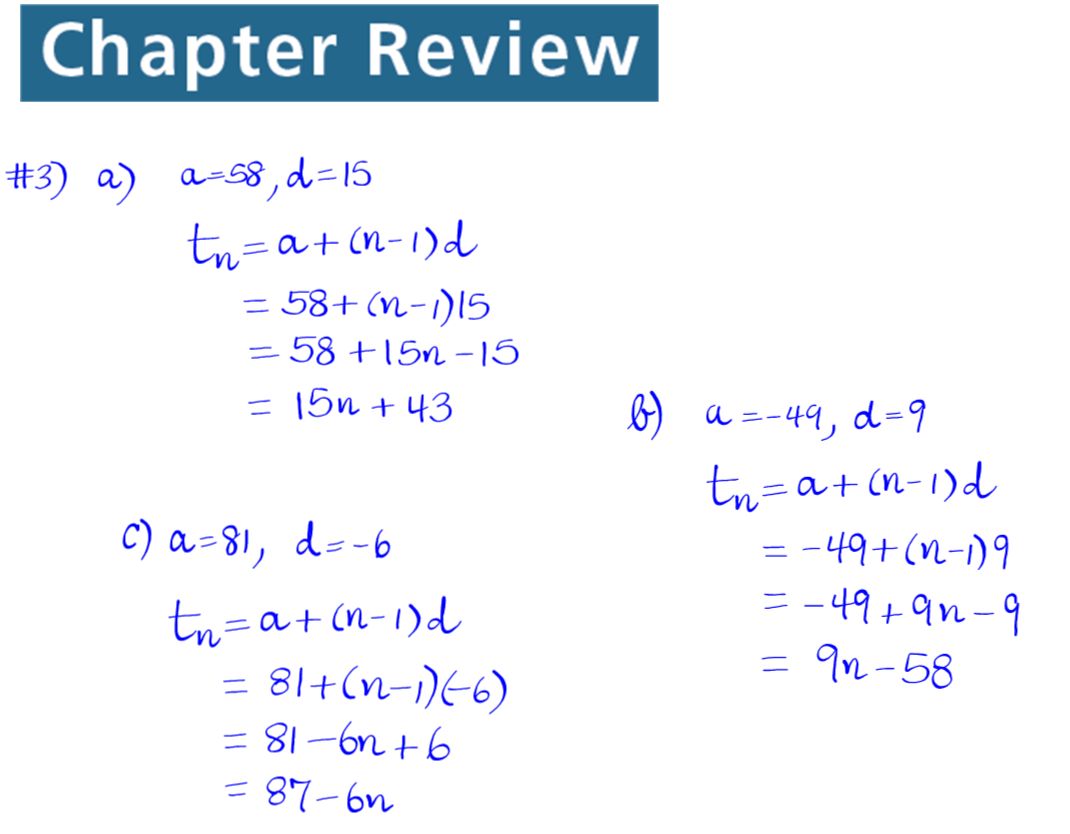 Chapter Review
#3) a) a=58, d=15
tn=a+(n-1)d
=58+(n-1)15
=58+15n-15
=15n+43
b) a=-49, d=9
tn=a+(n-1)d
=-49+(n-1)9
=-49+9n-9
=9n-58
c) a=81, d=-6
tn=a+(n-1)d
=81+(n-1)(-6)
=81-6n+6
=87-6n